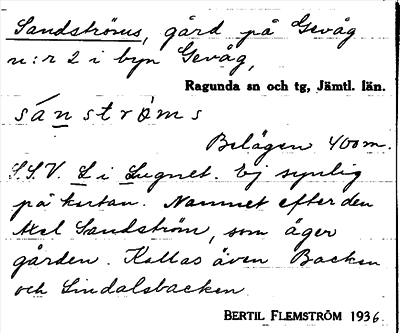 Sandströms, gård på Gevåg
n:r 2 i byn Gevåg,
Ragunda sn och tg, Jämtl. län.
sánströ̀ms
Belägen 400 m.
S.S.V. L i Lugnet. Ej synlig
på kartan. Namnet efter den
Axel Sandström, som äger
gården. Kallas även Backen
och Lindalsbacken.
BERTIL FLEMSTRÖM 1936.